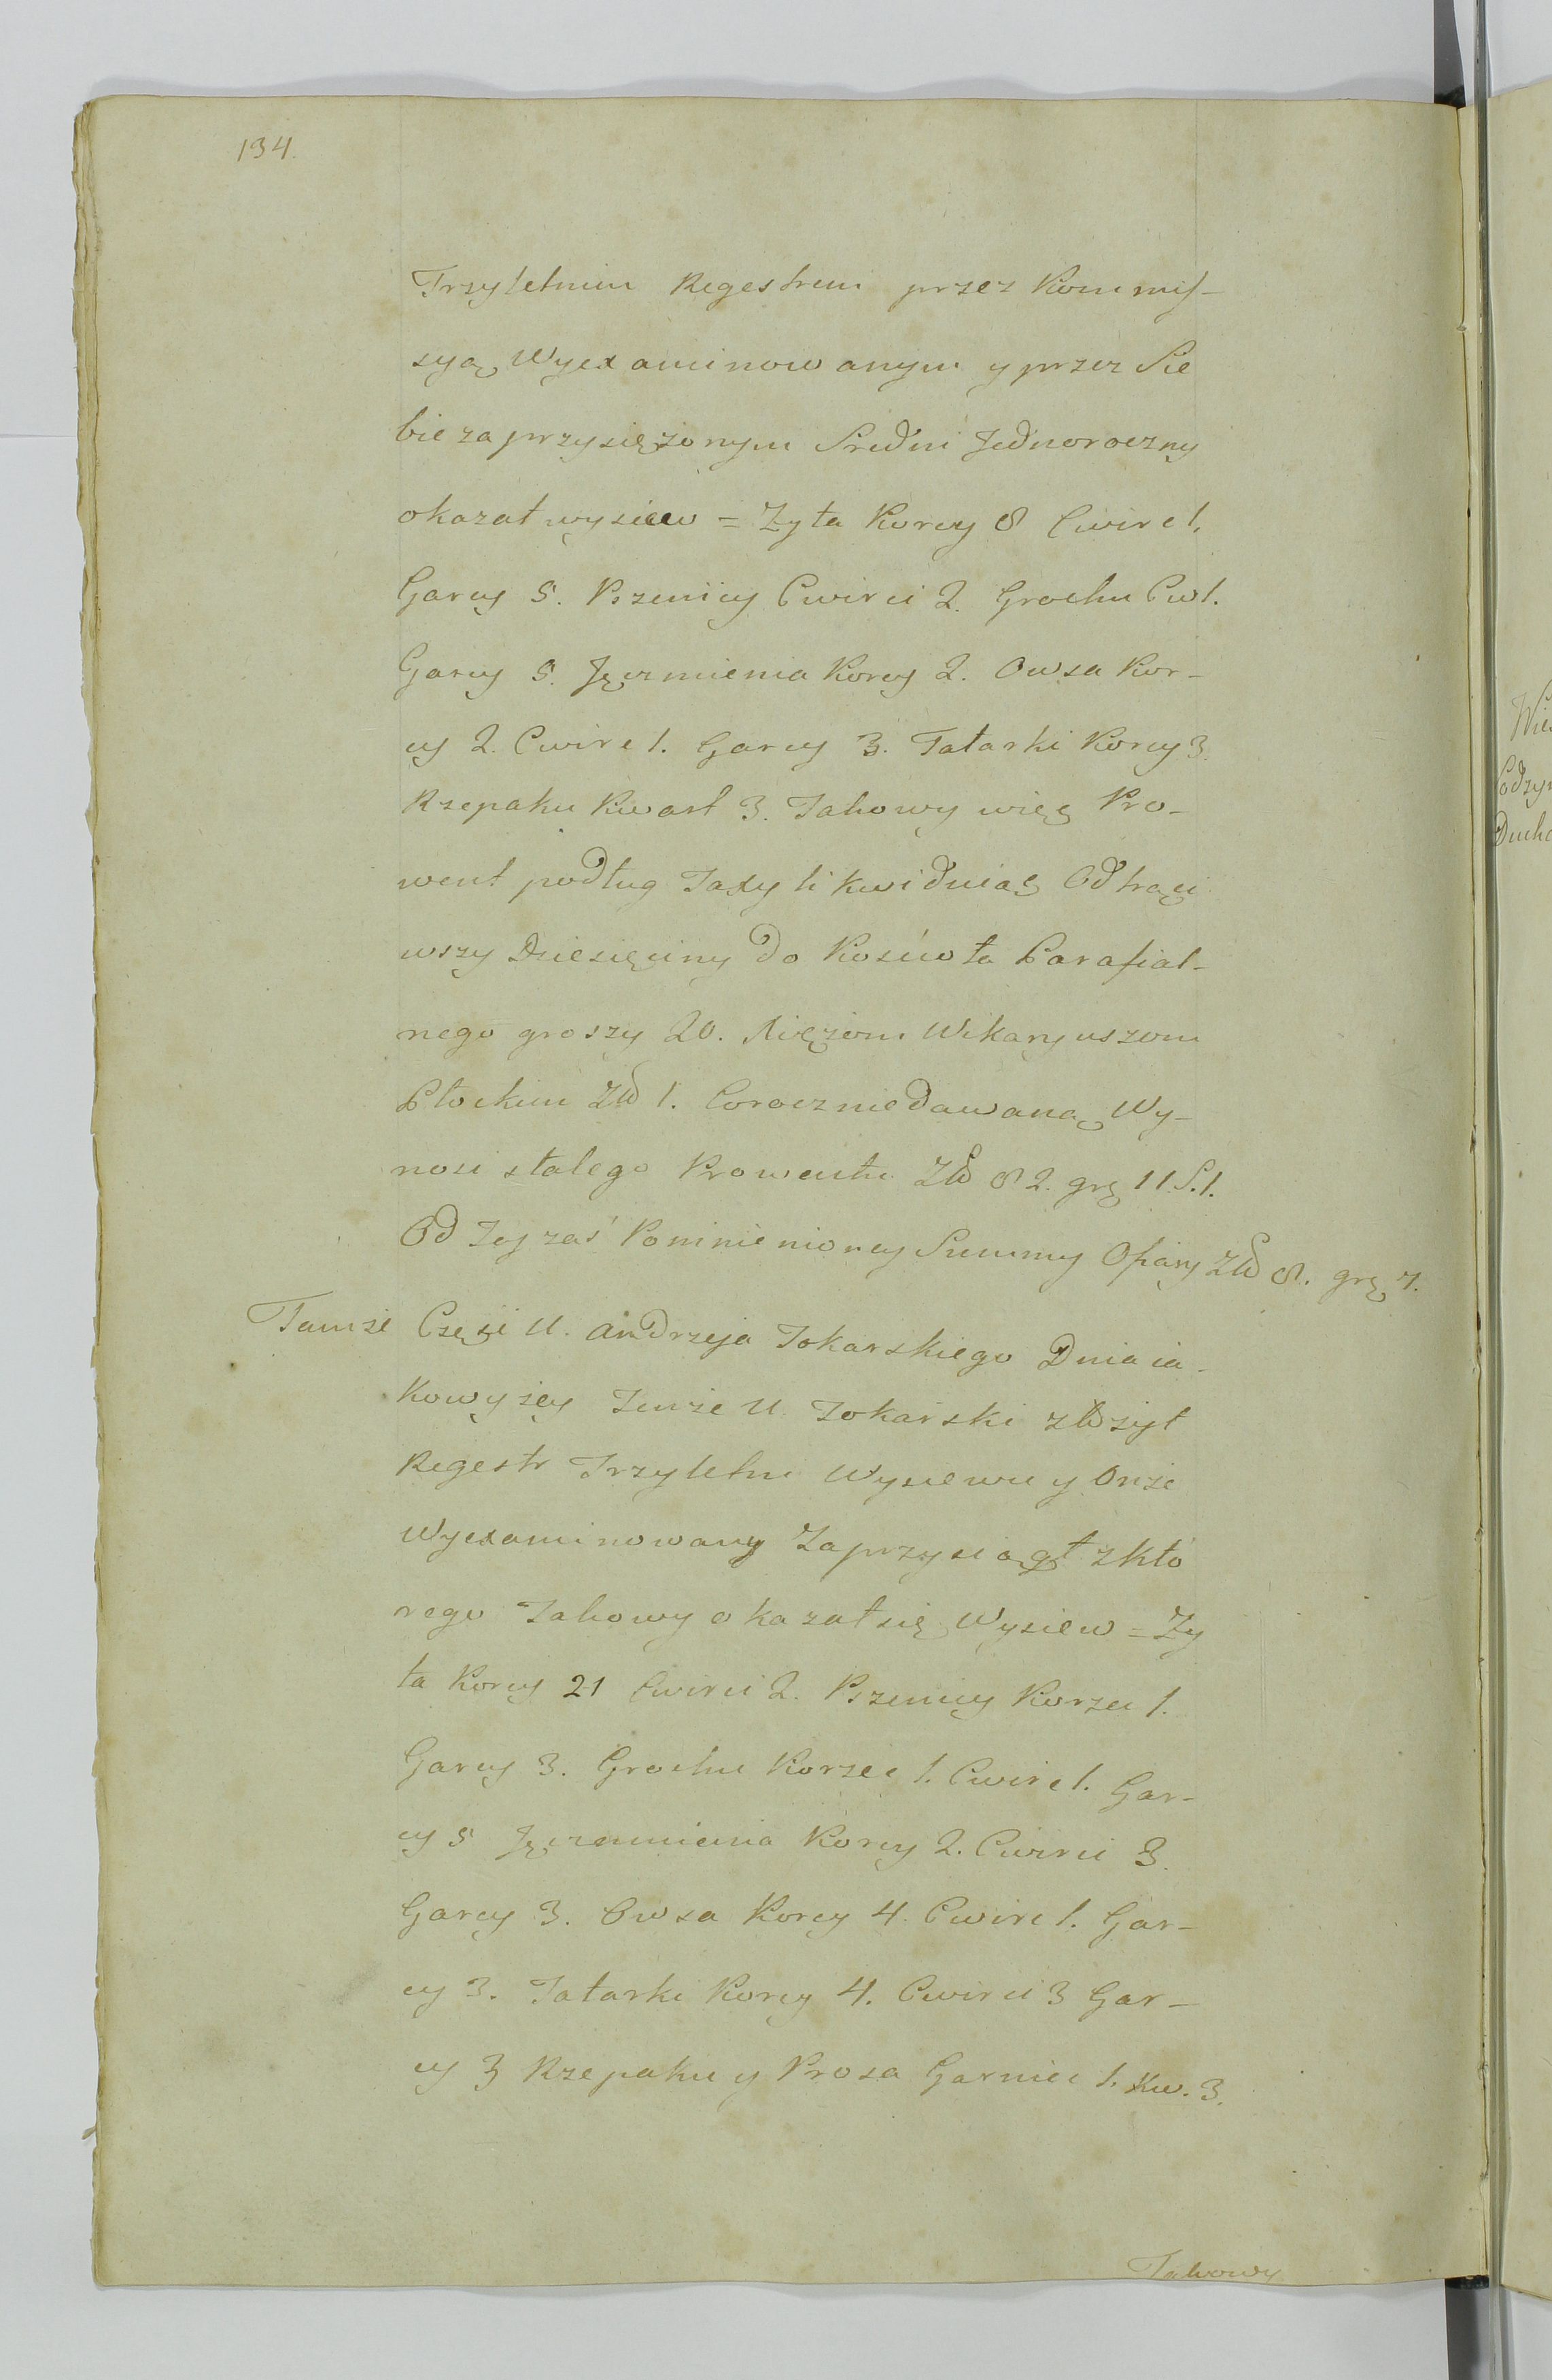 134
Trzyletnim Regestrem przez Kommis-
syą Wyexaminowanym y przez Sie
bie zaprzysiężonym Sredni Jednoroczny
okazał wysiew = Zyta Korcy 8 Cwirc 1.
Garcy 5. Pszenicy Cwirci 2. Grochu Cw 1.
Garcy 5. Jęczmienia Korcy 2. Owsa Kor-
cy 2. Cwirc 1. Garcy 3. Tatarki Korcy 3.
Rzepaku Kwart 3. Takowy więc Pro-
went podług Taxy likwiduiąc Odtrąci
wszy Dziesięciny do Kościoła Parafial-
nego groszy 20. Xiężom Wikaryuszom
Płockim Zł 1. Corocznie dawaną Wy-
nosi stałego Prowentu Zł 82. gr 11 S. 1.
Od Tej zaś Pomienioney Summy Ofiary Zł 8. gr 7.
Tamże Części U. Andrzeja Tokarskiego Dnia ia-
Kowyżey Tenże U. Tokarski złożył
Regestr Trzyletni Wysiewu y Onże
Wyexaminowany Zaprzysiągł z któ
rego Takowy okazał się Wysiew = Zy
ta Korcy 21 Cwirci 2. Pszenicy Korzec 1.
Garcy 3. Grochu Korzec 1. Cwirc 1. Gar-
cy 5 Jęczmienia Korcy 2. Cwirci 3.
Garcy 3. Owsa Korcy 4. Cwirc 1. Gar-
cy 3. Tatarki Korcy 4. Cwirci 3 Gar-
cy 3 Rzepaku y Prosa Garniec 1. Kw. 3.
Takowy